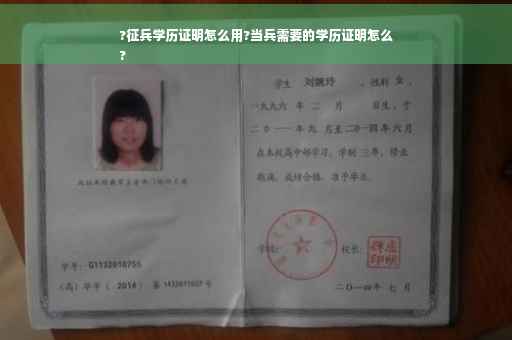 ?征兵学历证明怎么用?当兵需要的学历证明怎么
?
学生 刘婉玲 ,性别 女 ,
一九九六 年 二 月 日生,于
二〇一一 年 九 月至 二〇一四 年 六 月
在本校高中部学习,学制 三 年,修业
期满,成绩合格,准予毕业。
学号: G1132010755
(高)毕字( 2014 )第 1432011027 号
学校:
校长:
二〇一四年 七 月